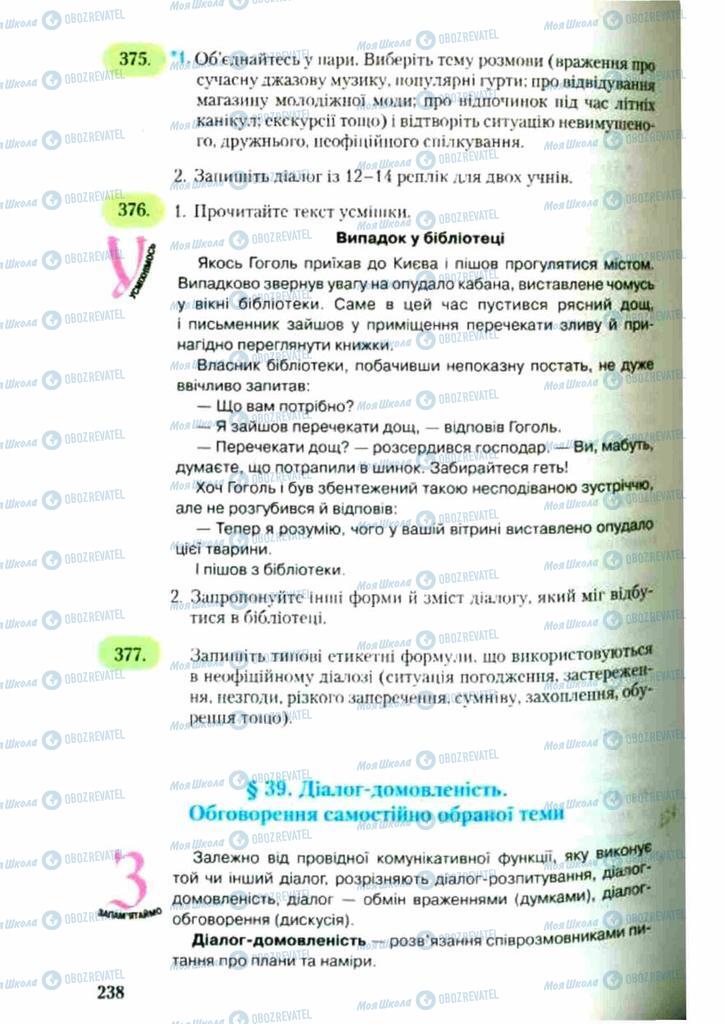 375. *1. Об'єднайтесь у пари. Виберіть тему розмови (враження про
сучасну джазову музику, популярні гурти; про відвідування
магазину молодіжної моди; про відпочинок під час літніх
канікул; екскурсії тощо) і відтворіть ситуацію невимушено-
го, дружнього, неофіційного спілкування.
2. Запишіть діалог із 12–14 реплік для двох учнів.
376. 1. Прочитайте текст усмішки.
УСМІХНІМОСЬ
Випадок у бібліотеці
Якось Гоголь приїхав до Києва і пішов прогулятися містом.
Випадково звернув увагу на опудало кабана, виставлене чомусь
у вікні бібліотеки. Саме в цей час пустився рясний дощ,
і письменник зайшов у приміщення перечекати зливу й при-
нагідно переглянути книжки.
Власник бібліотеки, побачивши непоказну постать, не дуже
ввічливо запитав:
— Що вам потрібно?
— Я зайшов перечекати дощ, — відповів Гоголь.
— Перечекати дощ? — розсердився господар. — Ви, мабуть,
думаєте, що потрапили в шинок. Забирайтеся геть!
Хоч Гоголь і був збентежений такою несподіваною зустріччю,
але не розгубився й відповів:
— Тепер я розумію, чого у вашій вітрині виставлено опудало
цієї тварини.
І пішов з бібліотеки.
2. Запропонуйте інші форми й зміст діалогу, який міг відбу-
тися в бібліотеці.
377. Запишіть типові етикетні формули, що використовуються
в неофіційному діалозі (ситуація погодження, застережен-
ня, незгоди, різкого заперечення, сумніву, захоплення, обу-
рення тощо).
§ 39. Діалог-домовленість.
Обговорення самостійно обраної теми
З
ЗАПАМ'ЯТАЙМО
Залежно від провідної комунікативної функції, яку виконує
той чи інший діалог, розрізняють діалог-розпитування, діалог-
домовленість, діалог — обмін враженнями (думками), діалог-
обговорення (дискусія).
Діалог-домовленість — розв'язання співрозмовниками пи-
тання про плани та наміри.
238